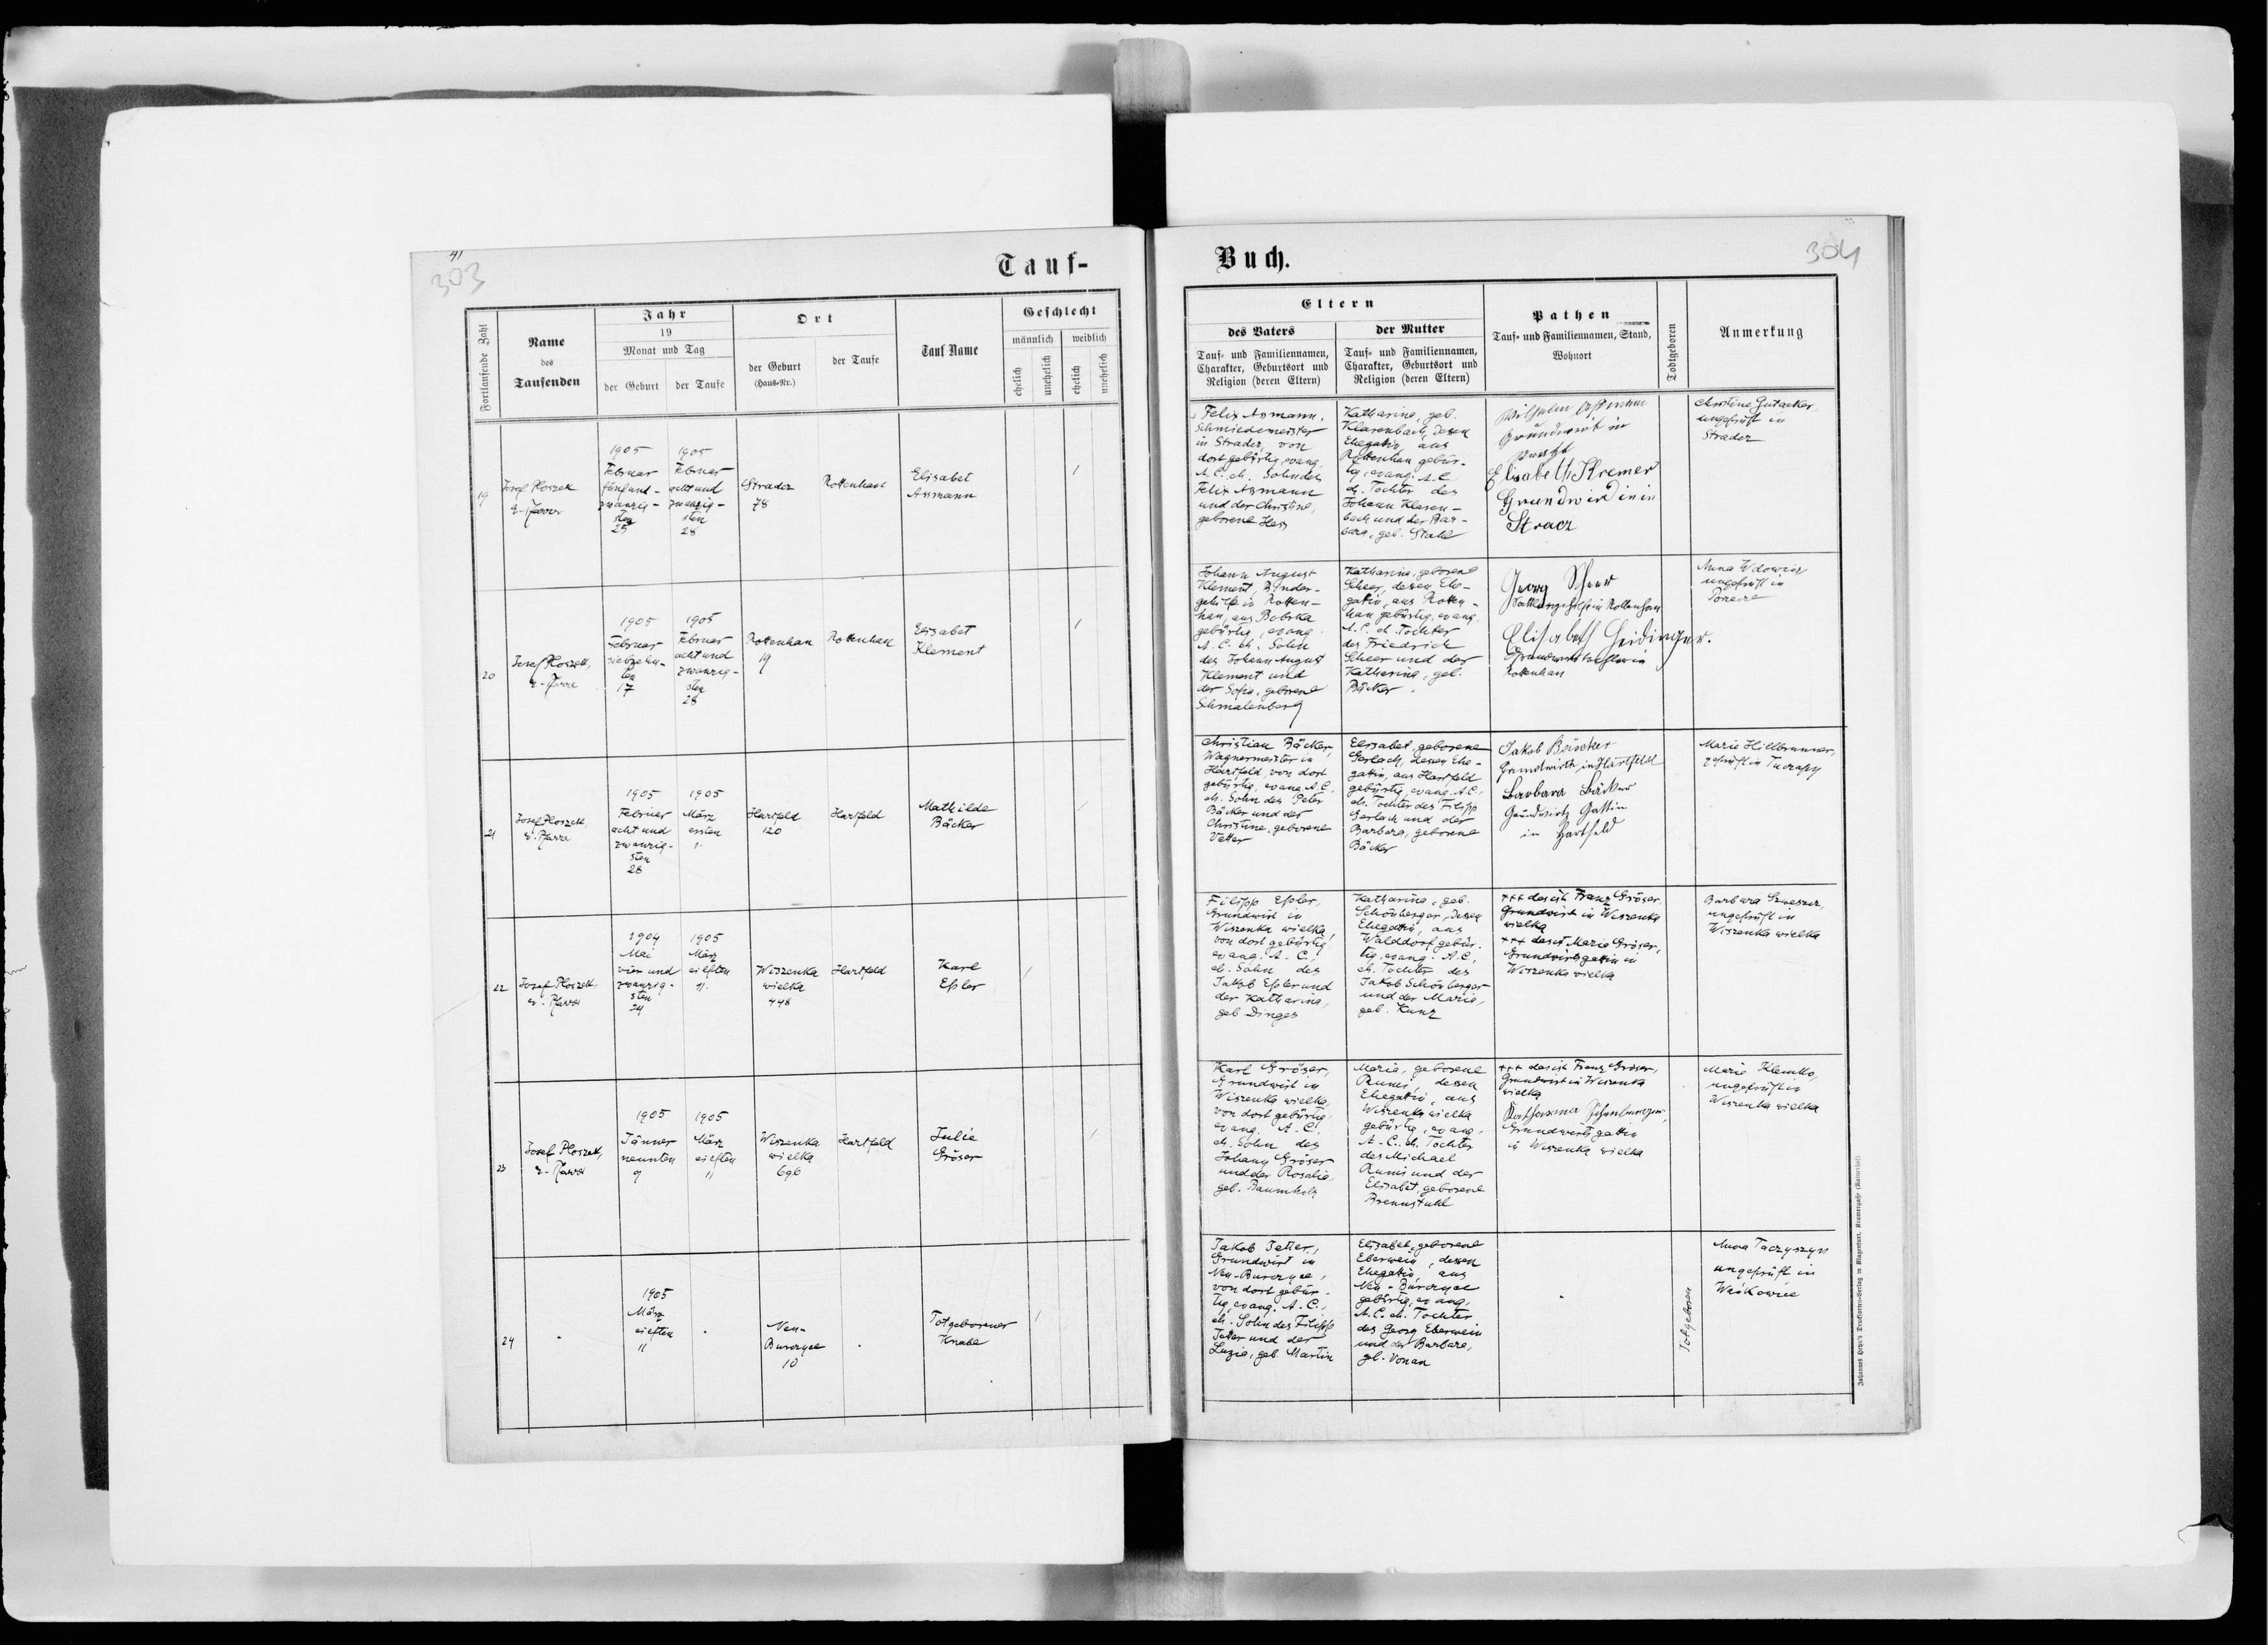 41
303
Tauf-
Fortlaufende Zahl
Name
des
Taufenden
Jahr
19
Monat und Tag
der Geburt
der Taufe
Ort
der Geburt
(Haus-Nr.)
der Taufe
Tauf Name
Geschlecht
männlich
weiblich
ehelich
unehelich
ehelich
unehelich
19
Josef Ploszek
e. Pfarrer
1905
Februar
fünfund-
zwanzig-
sten
25
1905
Februar
acht und
zwanzig-
sten
28
Stradcz
78
Rottenhan
Elisabet
Assmann
20
Josef Ploszek,
1905
Februar
siebzehn-
ten
17
1905
Februar
acht und
zwanzig-
sten
28
Rottenhan
19
Rottenhan
Elisabet
Klement
21
Josef Ploszek
e. Pfarrer
1905
Februar
acht und
zwanzig-
sten
28
1905
März
ersten
1.
Hartfeld
120
Hartfeld
Mathilde
Bäcker
22
Josef Ploszek,
e. Pfarrer
1904
Mai
vier und
zwanzig-
sten
24
1905
März
eilften
11.
Wiszenka
wielka
448
Hartfeld
Karl
Eßler
23
Josef Ploszek,
e. Pfarrer
1905
Jänner
neunten
9
1905
März
eilften
11
Wiszenka
wielka
696
Hartfeld
Julie
Gröser
24
1905
März
eilften
11
Neu-
Burczyce
10
Totgeborener
Knabe
Buch.
304
Eltern
des Vaters
Tauf- und Familiennamen,
Charakter, Geburtsort und
Religion (deren Eltern)
der Mutter
Tauf- und Familiennamen,
Charakter, Geburtsort und
Religion (deren Eltern)
Pathen
Tauf- und Familiennamen, Stand,
Wohnort
Todtgeboren
Anmerkung
Felix Assmann,
Schmiedemeister
in Stradcz, von
dort gebürtig, evang.
A.C. eh. Sohn des
Felix Assmann
und der Christine,
geborene Hess
Katharina, geb.
Klasenbach, dessen
Ehegattin, aus
Rottenhan gebür-
tig, evang. A.C.
eh. Tochter des
Johann Klasen-
bach und der Bar-
bara, geb. Stahl
Wilhelm Assmann
Grundwirt in
Elisabeth Kremer
Grundwirdin in
Stracz
Christine Gutacker
ungeprüft in
Stradcz
Johann August
Klement, Binder-
gehilfe in Rotten-
han, aus Bobrka
gebürtig, evang.
A.C. eh. Sohn
des Johann August
Klement und
der Sofia, geborene
Schmalenberg
Katharina, geborene
Scheer, dessen Ehe-
gattin, aus Rotten-
han gebürtig, evang.
A.C. eh. Tochter
des Friedrich
Scheer und der
Katharina, geb.
Bäcker.
Georg Scheer
in Rottenhan
Elisabeth Heidinger.
Grundwirtstochter in
Rottenhan
Anna Wdowicz
ungeprüft in
Porzecze
Christian Bäcker,
Wagnermeister in
Hartfeld, von dort
gebürtig, evang. A.C.,
eh. Sohn des Peter
Bäcker und der
Christine, geborene
Vetter
Elisabet, geborene
Gerlach, dessen Ehe-
gattin, aus Hartfeld
gebürtig, evang. A.C.,
eh. Tochter des Filipp
Gerlach und der
Barbara, geborene
Bäcker
Jakob Bäcker
Grundwirth in Hartfeld
Barbara Bäcker
Grundwirtz Gattin
in Hartfeld
Marie Hillbrunner,
geprüft in Tuczapy
Filipp Eßler,
Grundwirt in
Wiszenka wielka,
von dort gebürtig
evang. A.C.,
eh. Sohn des
Jakob Eßler und
der Katharina,
geb. Dinges
Katharina, geb.
Schönberger, dessen
Ehegattin, aus
Walddorf gebür-
tig, evang. A.C.,
eh. Tochter des
Jakob Schönberger
und der Marie,
geb. Kunz
+++ das ist Franz Gröser,
Grundwirt in Wiszenka
wielka
+++ das ist Marie Gröser,
Grundwirtsgattin in
Wiszenka wielka
Barbara
ungeprüft in
Wiszenka wielka
Karl Gröser,
Grundwirt in
Wiszenka wielka,
von dort gebürtig
evang. A.C.,
eh. Sohn des
Johann Gröser
und der Rosalie,
geb. Baumholz
Marie, geborene
Rumi, dessen
Ehegattin, aus
Wiszenka wielka
gebürtig, evang.
A.C. eh. Tochter
des Michael
Rumi und der
Elisabet, geborene
Brennstuhl
+++ das ist Franz Gröser,
Grundwirt in Wiszenka
wielka
Katharina Schenberger,
Grundwirtsgattin
in Wiszenka wielka
Marie Klemko,
ungeprüft in
Wiszenka wielka
Jakob Jetter,
Grundwirt in
Neu-Burczyce,
von dort gebür-
tig, evang. A.C.,
eh. Sohn des Filipp
Jetter und der
Luzie, geb. Martin
Elisabet, geborene
Eberwein, dessen
Ehegattin, aus
Neu-Burczyce
gebürtig, evang.
A.C. eh. Tochter
des Georg Eberwein
und der Barbara,
geb. Vonau
Totgeboren
Anna Taczyszyn
ungeprüft in
Wańkowice
Johannes Heyn's Drucksorten-Verlag in Klagenfurt, Kramergasse